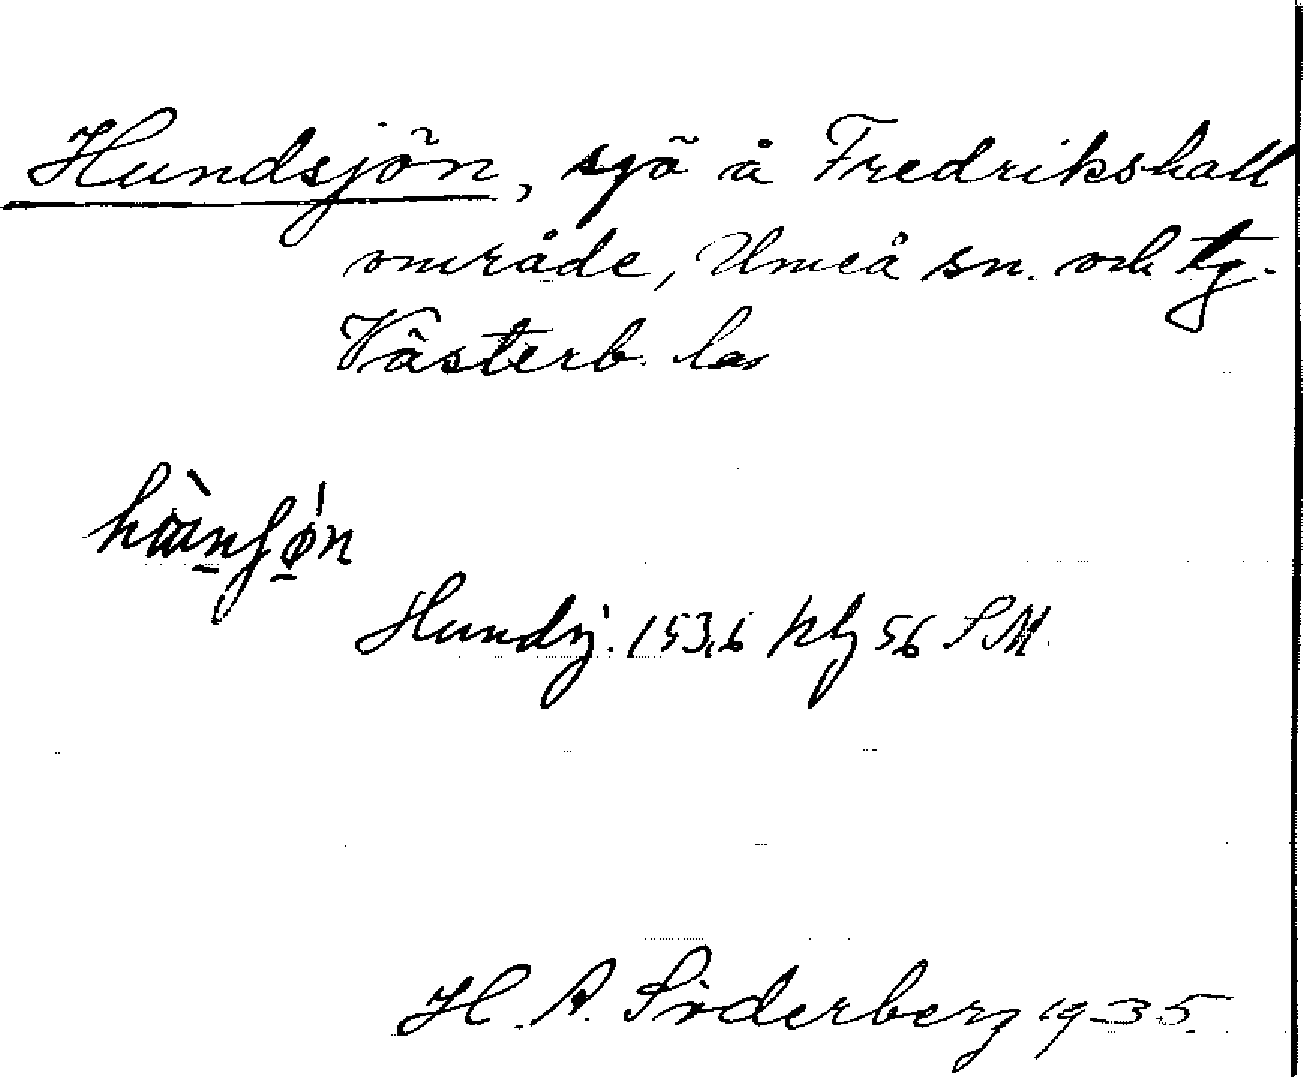 Hundsjön, sjö å Fredrikshall
område, Umeå sn. och tg.
Västerb. län
Hundsj. 1536 hlg 56 SM.
H. A. Söderberg 1935